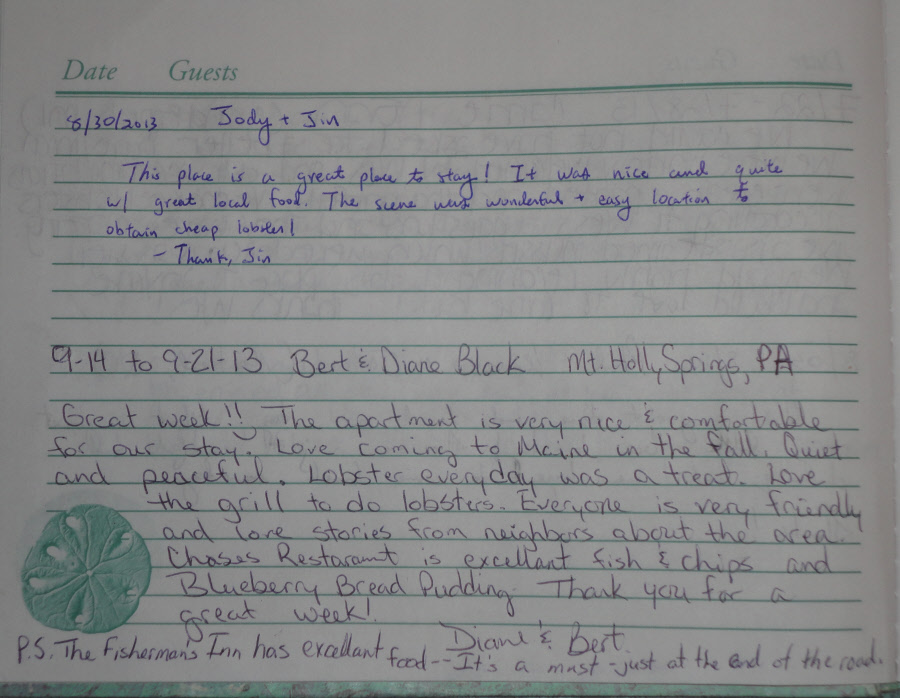 Date Guests
8/30/2013 Jody + Jin
This place is a great place to stay! It was nice and quite
w/ great local food. The scene was wonderful + easy location to
obtain cheap lobster!
- Thank, Jin
9-14 to 9-21-13 Bert & Diane Black Mt. Holly Springs, PA
Great week!! The apartment is very nice & comfortable
for our stay. Love coming to Maine in the fall. Quiet
and peaceful. Lobster everyday was a treat. Love
the grill to do lobsters. Everyone is very friendly
and love stories from neighbors about the area.
Chases Restaraunt is excellant fish & chips and
Blueberry Bread Pudding. Thank you for a
great week!
Diane & Bert
P.S. The Fisherman's Inn has excellant food--It's a must-just at the end of the road.